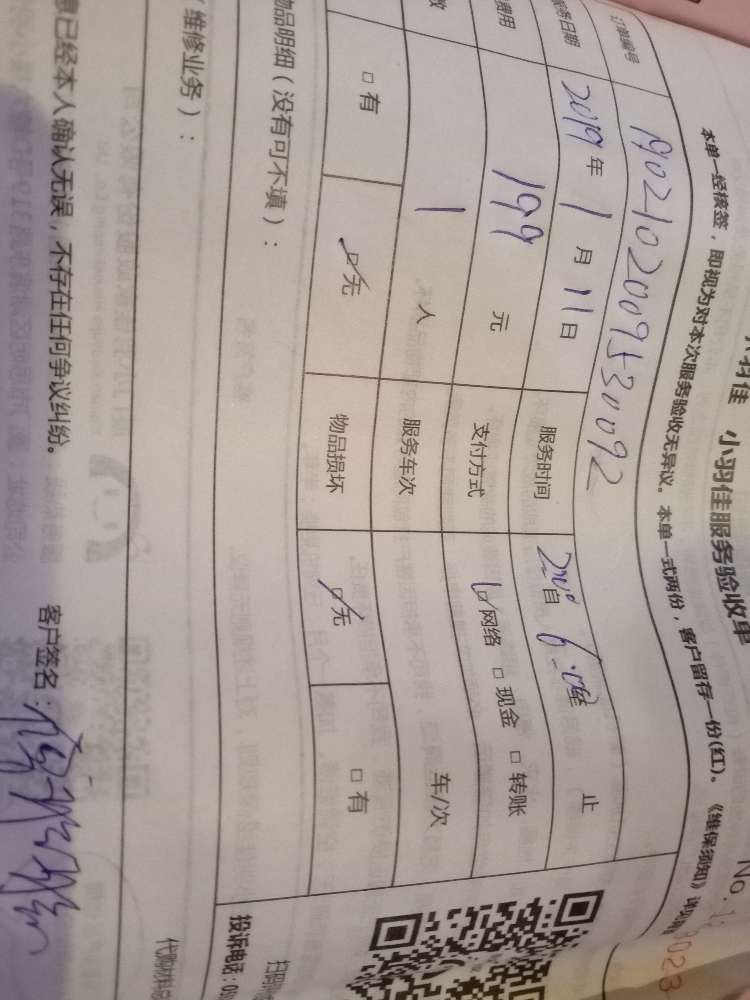 小羽佳 小羽佳服务验收单
No.
3023
本单一经核签，即视为对本次服务验收无异议。本单一式两份，客户留存一份(红)。《维保须知》
订单编号 1902102009530092
服务日期 2019年1月11日 服务时间 自 止
费用 199 元 支付方式 网络 现金 转账
数 1 人 服务车次 车/次
有 无 物品损坏 无 有
物品明细（没有可不填）：
（维修业务）：
代购材料总
投诉电话：0
已经本人确认无误，不存在任何争议纠纷。 客户签名：